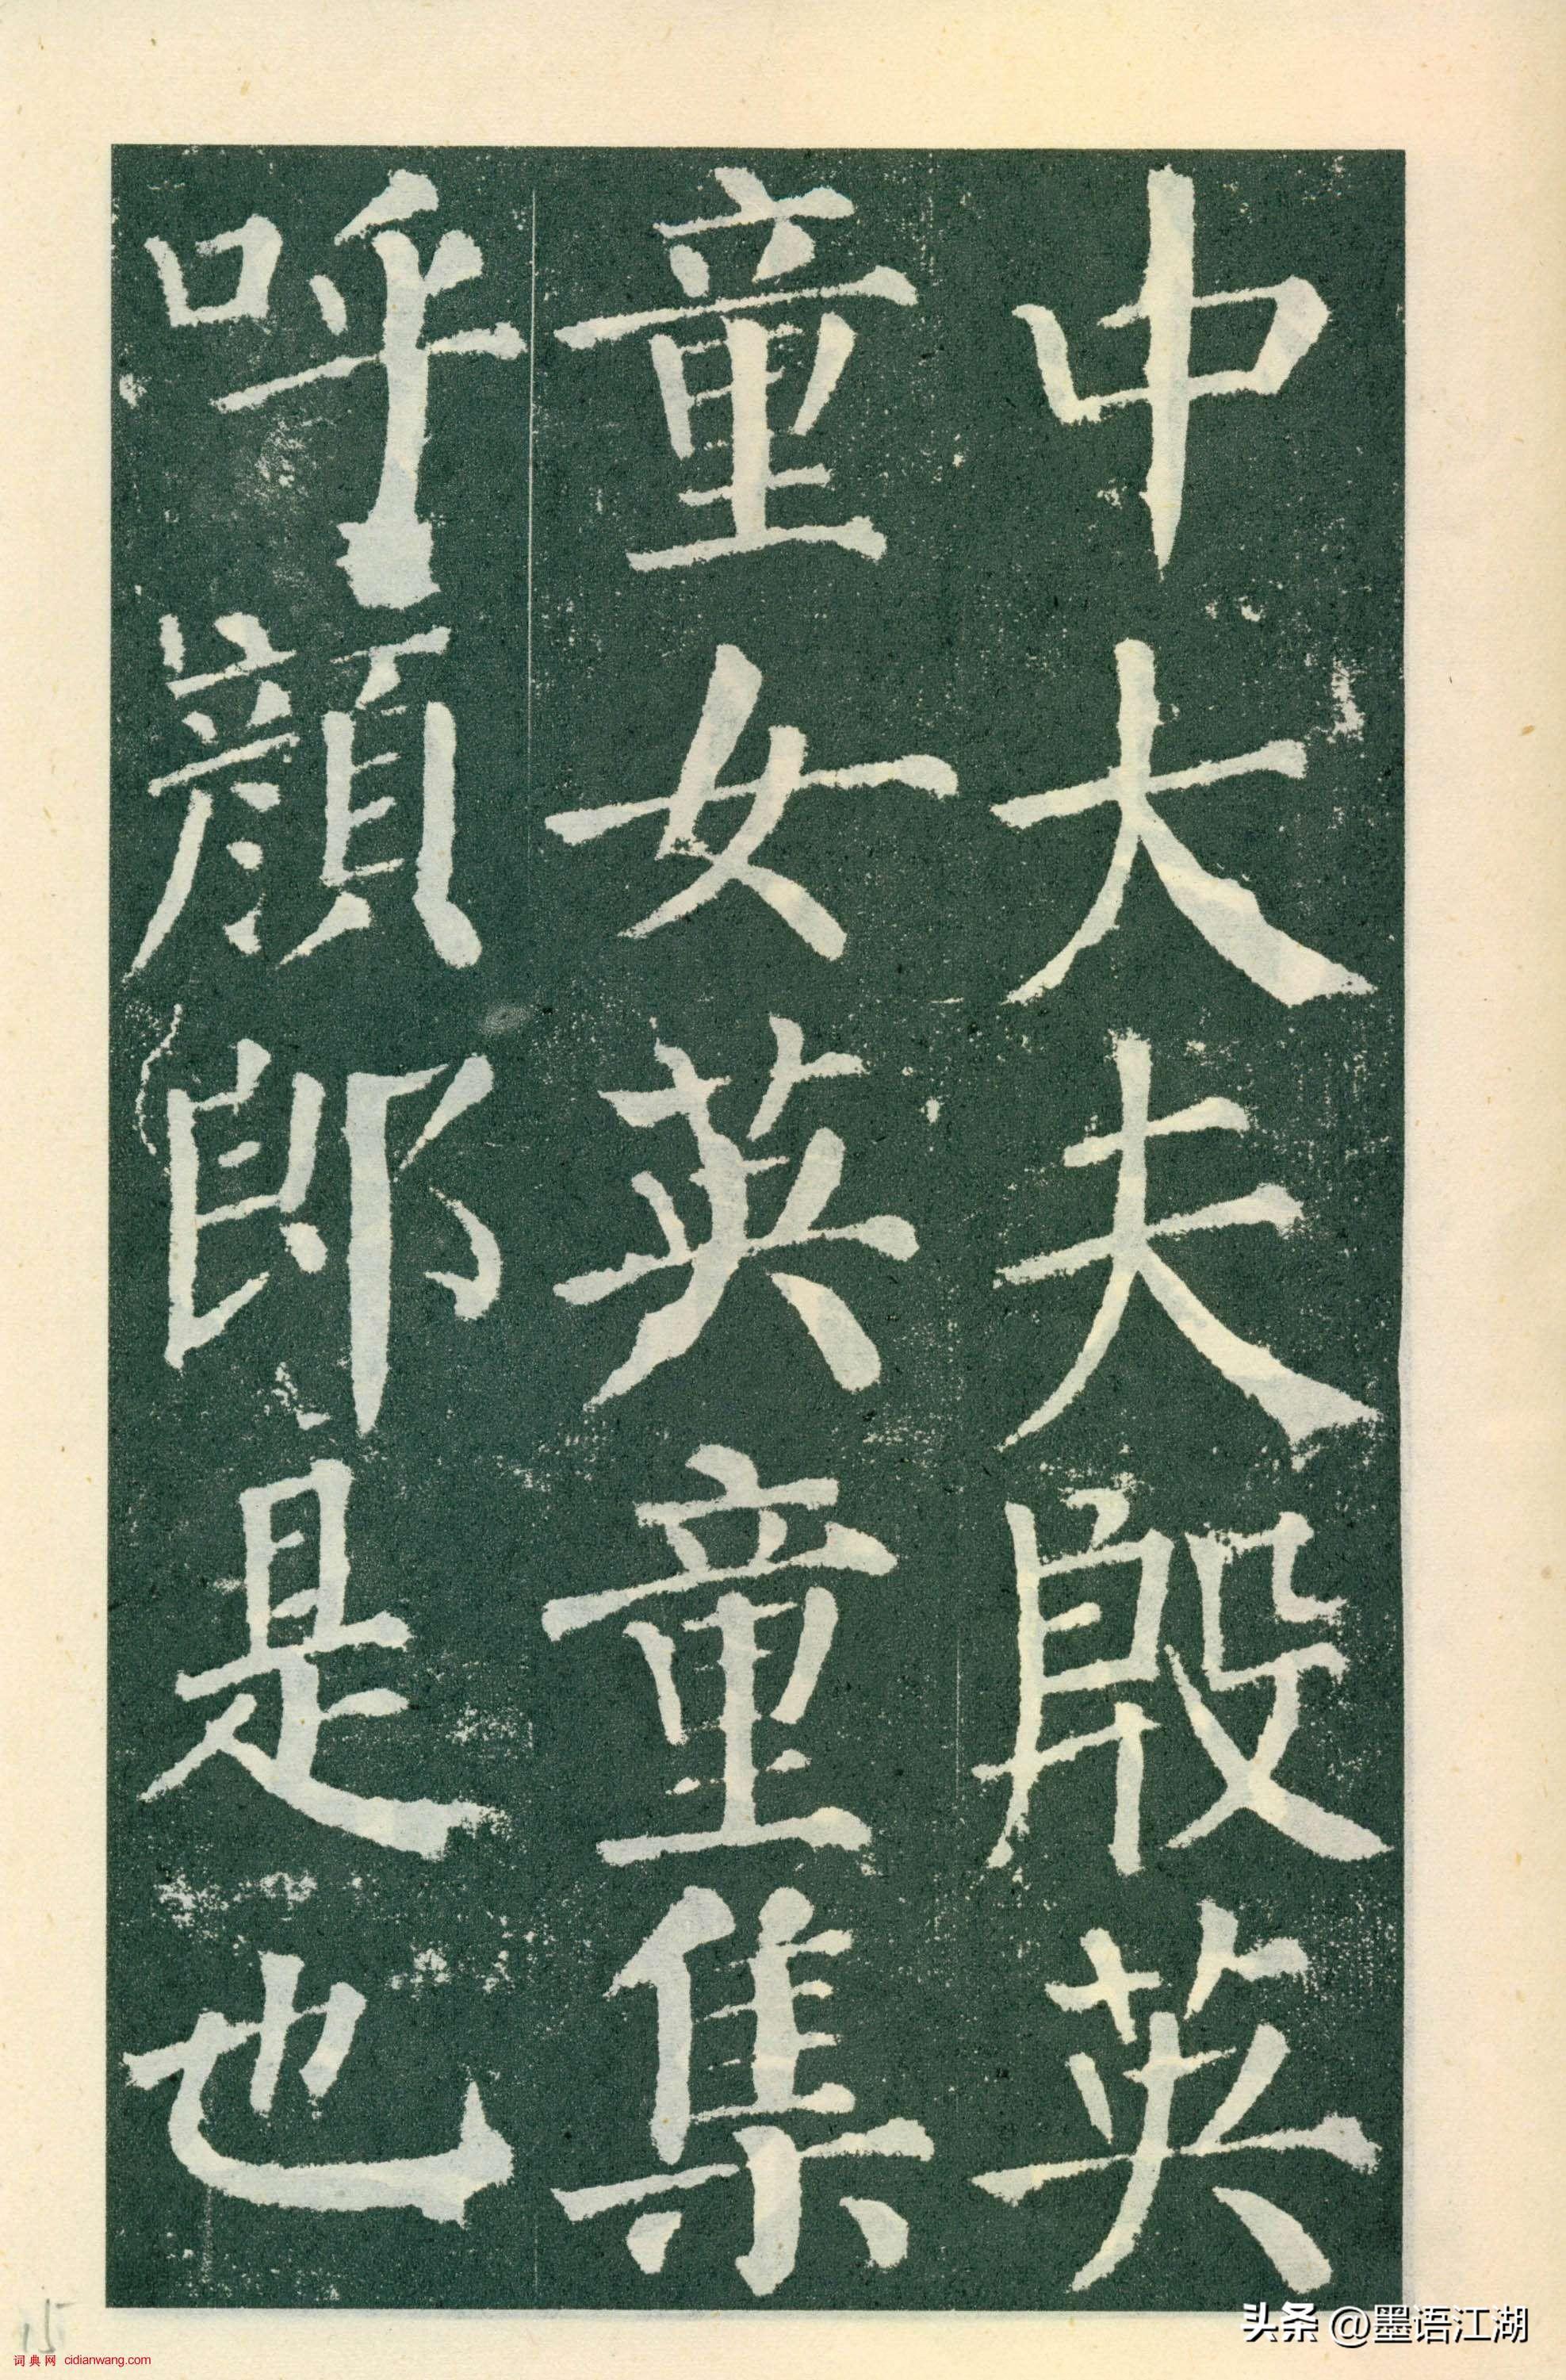 中大夫殷英
童女英童集
呼顔郎是也
头条 @墨语江湖
15
词典网 cidianwang.com